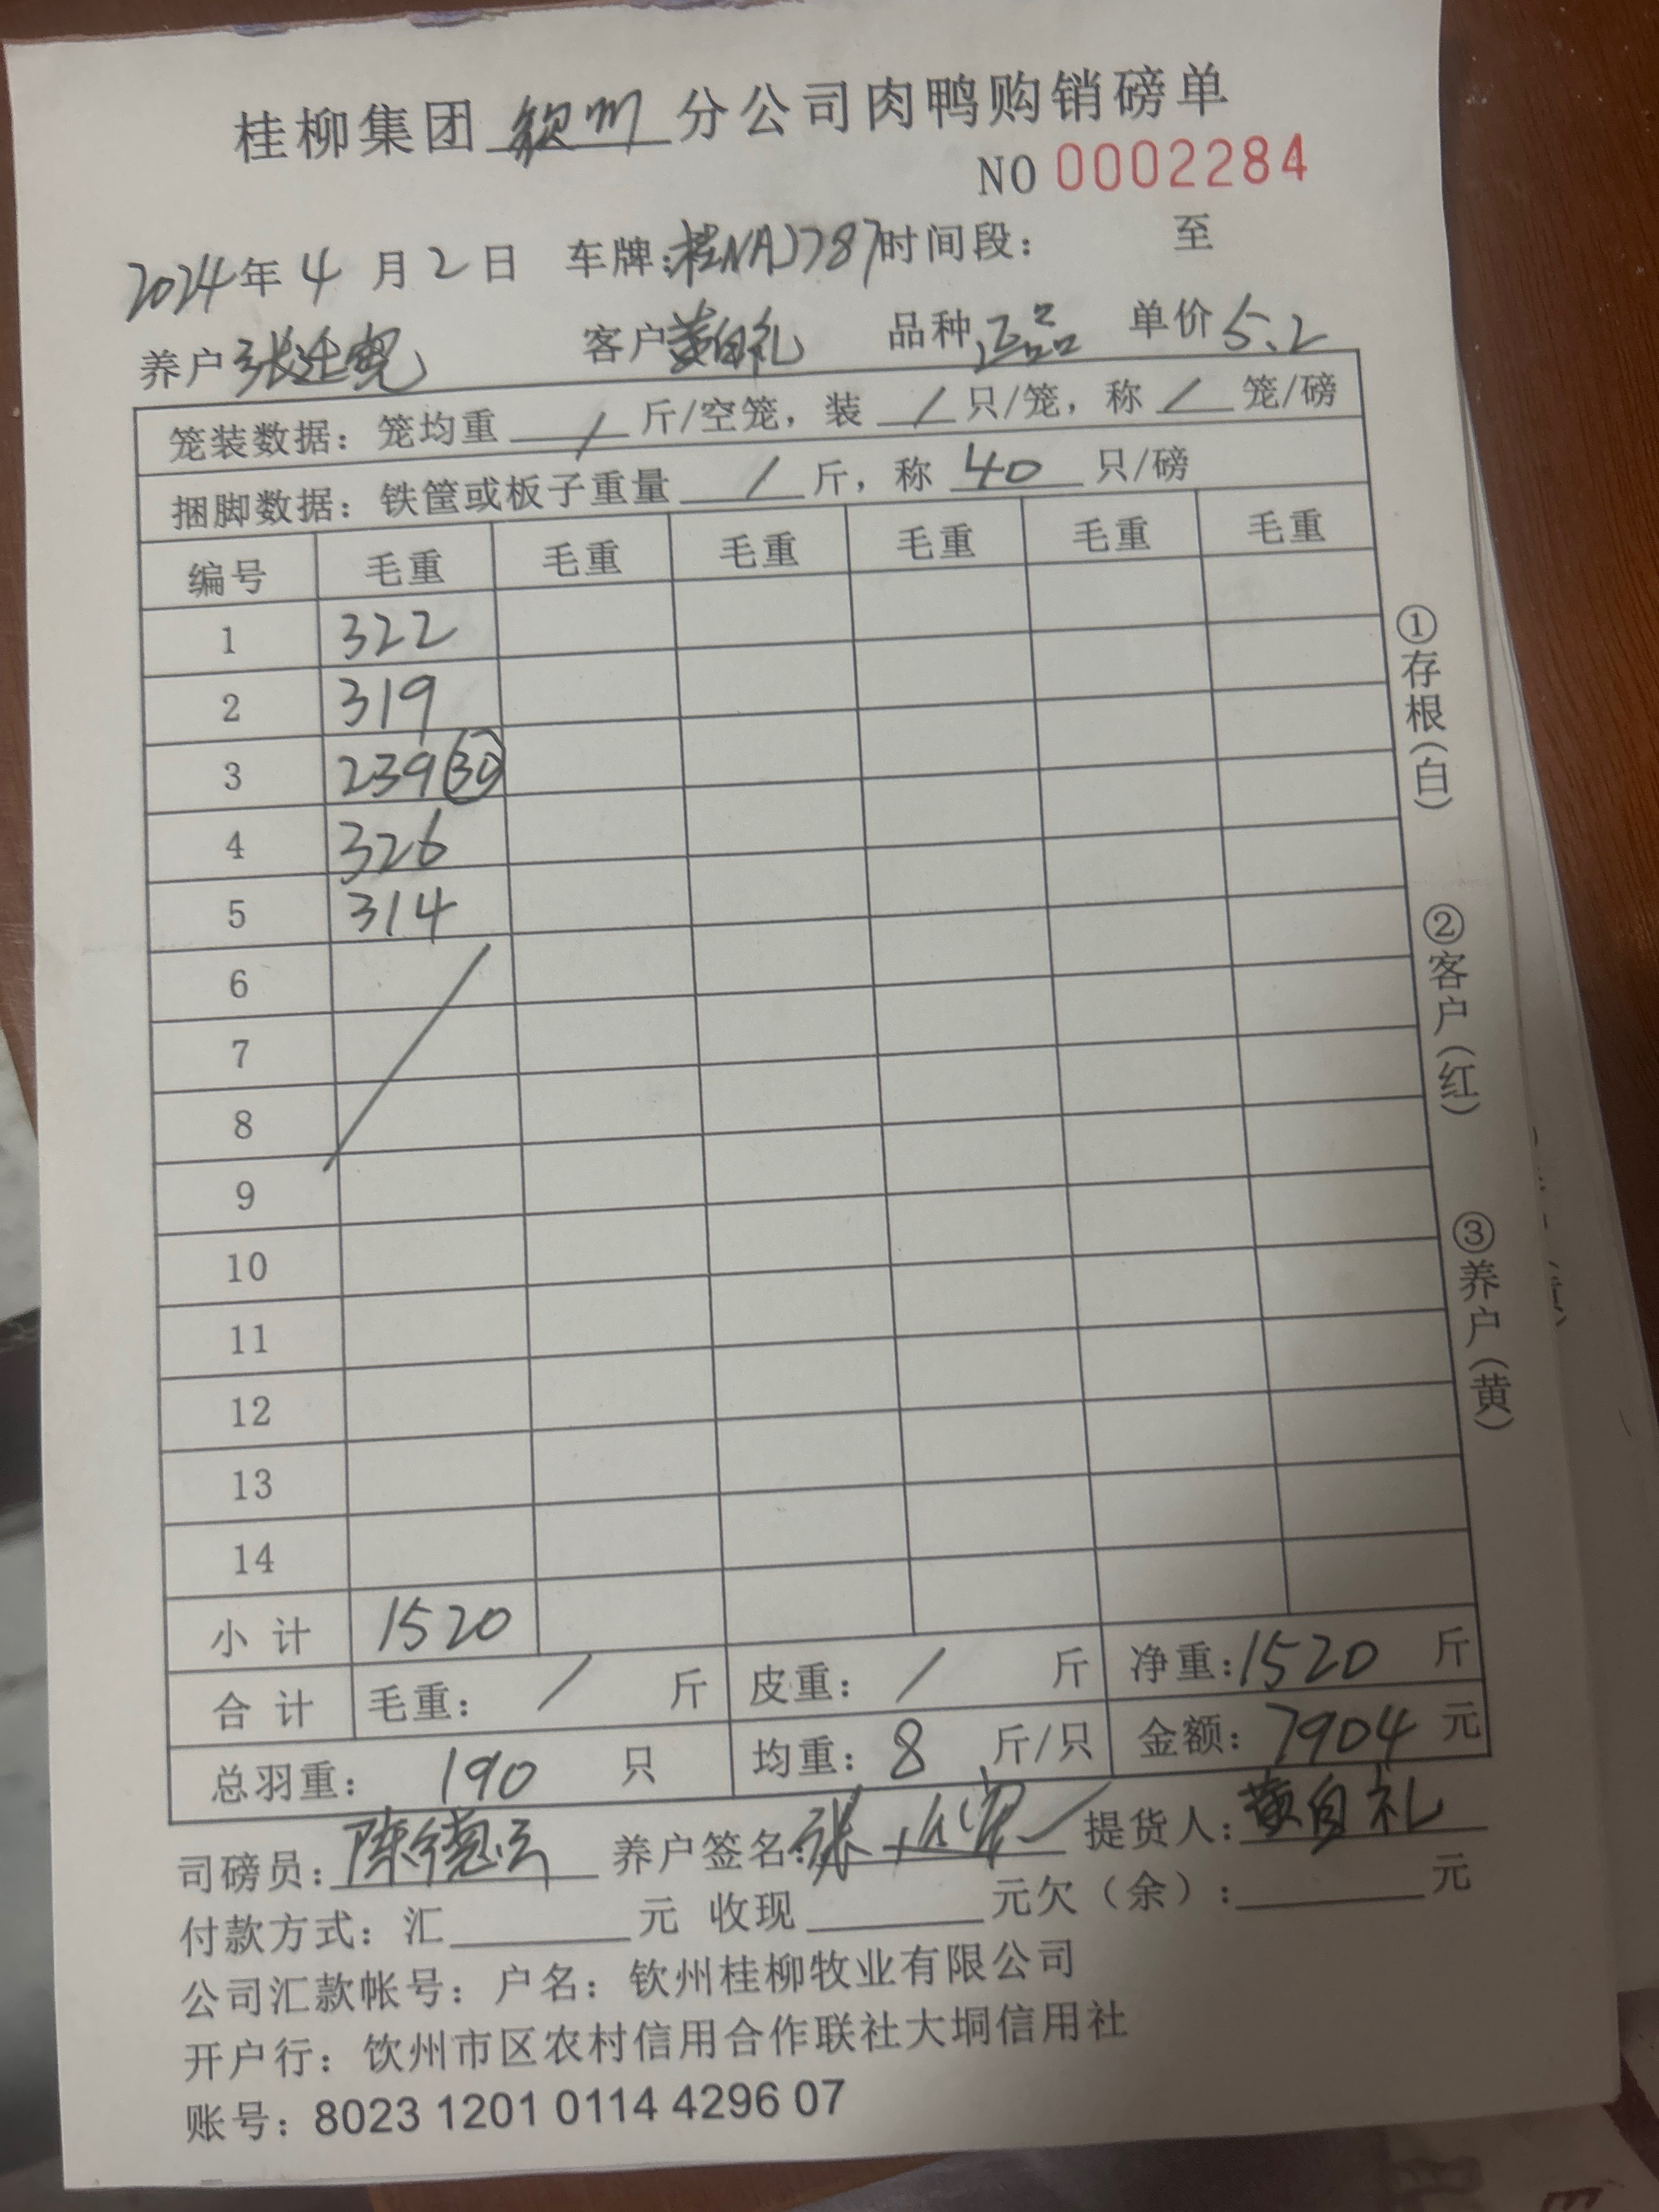 桂柳集团 钦州 分公司肉鸭购销磅单
NO 0002284
2024年 4 月 2 日 车牌:桂NA3787 时间段: 至
养户 张 客户 黄自礼 品种 正品 单价 5.2
笼装数据: 笼均重 / 斤/空笼, 装 / 只/笼, 称 / 笼/磅
捆脚数据: 铁筐或板子重量 / 斤, 称 40 只/磅
编号 毛重 毛重 毛重 毛重 毛重 毛重
1 322
2 319
3 239 30
4 326
5 314
6
7
8
9
10
11
12
13
14
小 计 1520
合 计 毛重: / 斤 皮重: / 斤 净重: 1520 斤
总羽重: 190 只 均重: 8 斤/只 金额: 7904 元
司磅员: 陈德 养户签名: 张 提货人: 黄自礼
付款方式: 汇 元 收现 元欠(余): 元
公司汇款帐号: 户名: 钦州桂柳牧业有限公司
开户行: 钦州市区农村信用合作联社大垌信用社
账号: 8023 1201 0114 4296 07
①存根(白)
②客户(红)
③养户(黄)